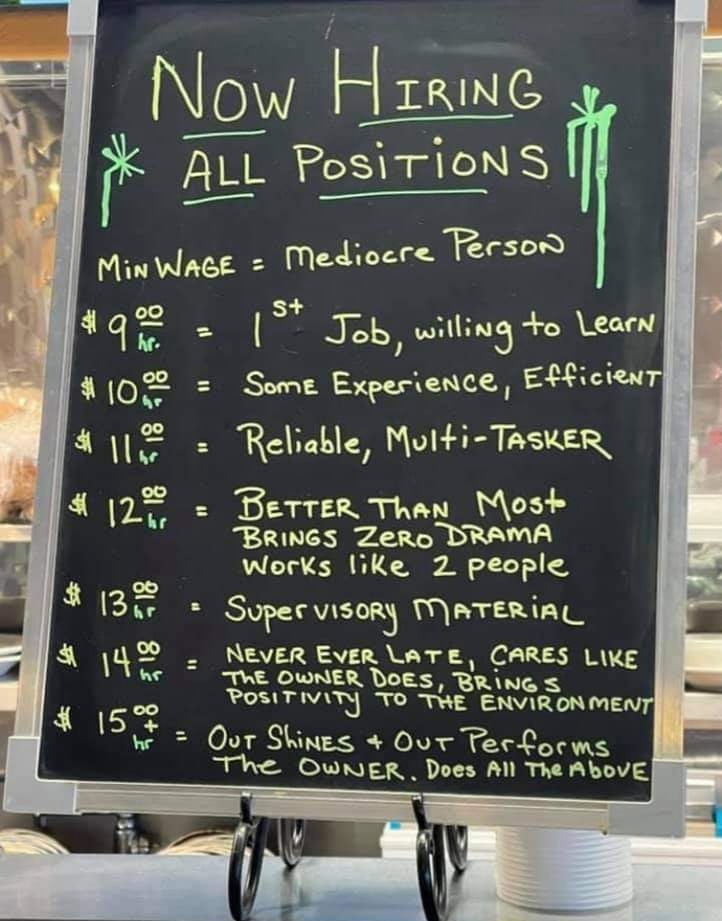 Now Hiring
ALL Positions
Min Wage = Mediocre Person
$ 9 00 hr. = 1st Job, willing to Learn
$ 10 00 hr = Some Experience, Efficient
$ 11 00 hr = Reliable, Multi-Tasker
$ 12 00 hr = Better Than Most
Brings Zero Drama
Works like 2 people
$ 13 00 hr = Supervisory Material
$ 14 00 hr = Never Ever Late, Cares Like
The Owner Does, Brings
Positivity To The Environment
$ 15 00 + hr = Out Shines + Out Performs
The Owner. Does All The Above